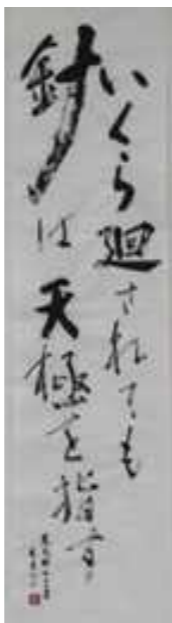 いくら廻されても
針は天極を指す